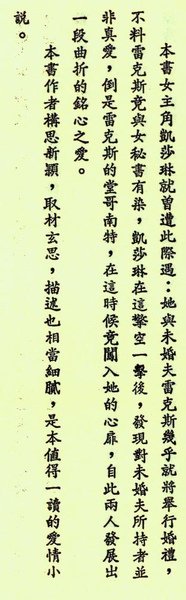 本書女主角凱莎琳就曾遭此際遇：她與未婚夫雷克斯幾乎就將舉行婚禮，
不料雷克斯竟與女秘書有染，凱莎琳在這擎空一擊後，發現對未婚夫所持者並
非真愛，倒是雷克斯的堂哥南特，在這時候竟闖入她的心扉，自此兩人發展出
一段曲折的銘心之愛。
本書作者構思新穎，取材玄思，描述也相當細膩，是本值得一讀的愛情小
說。